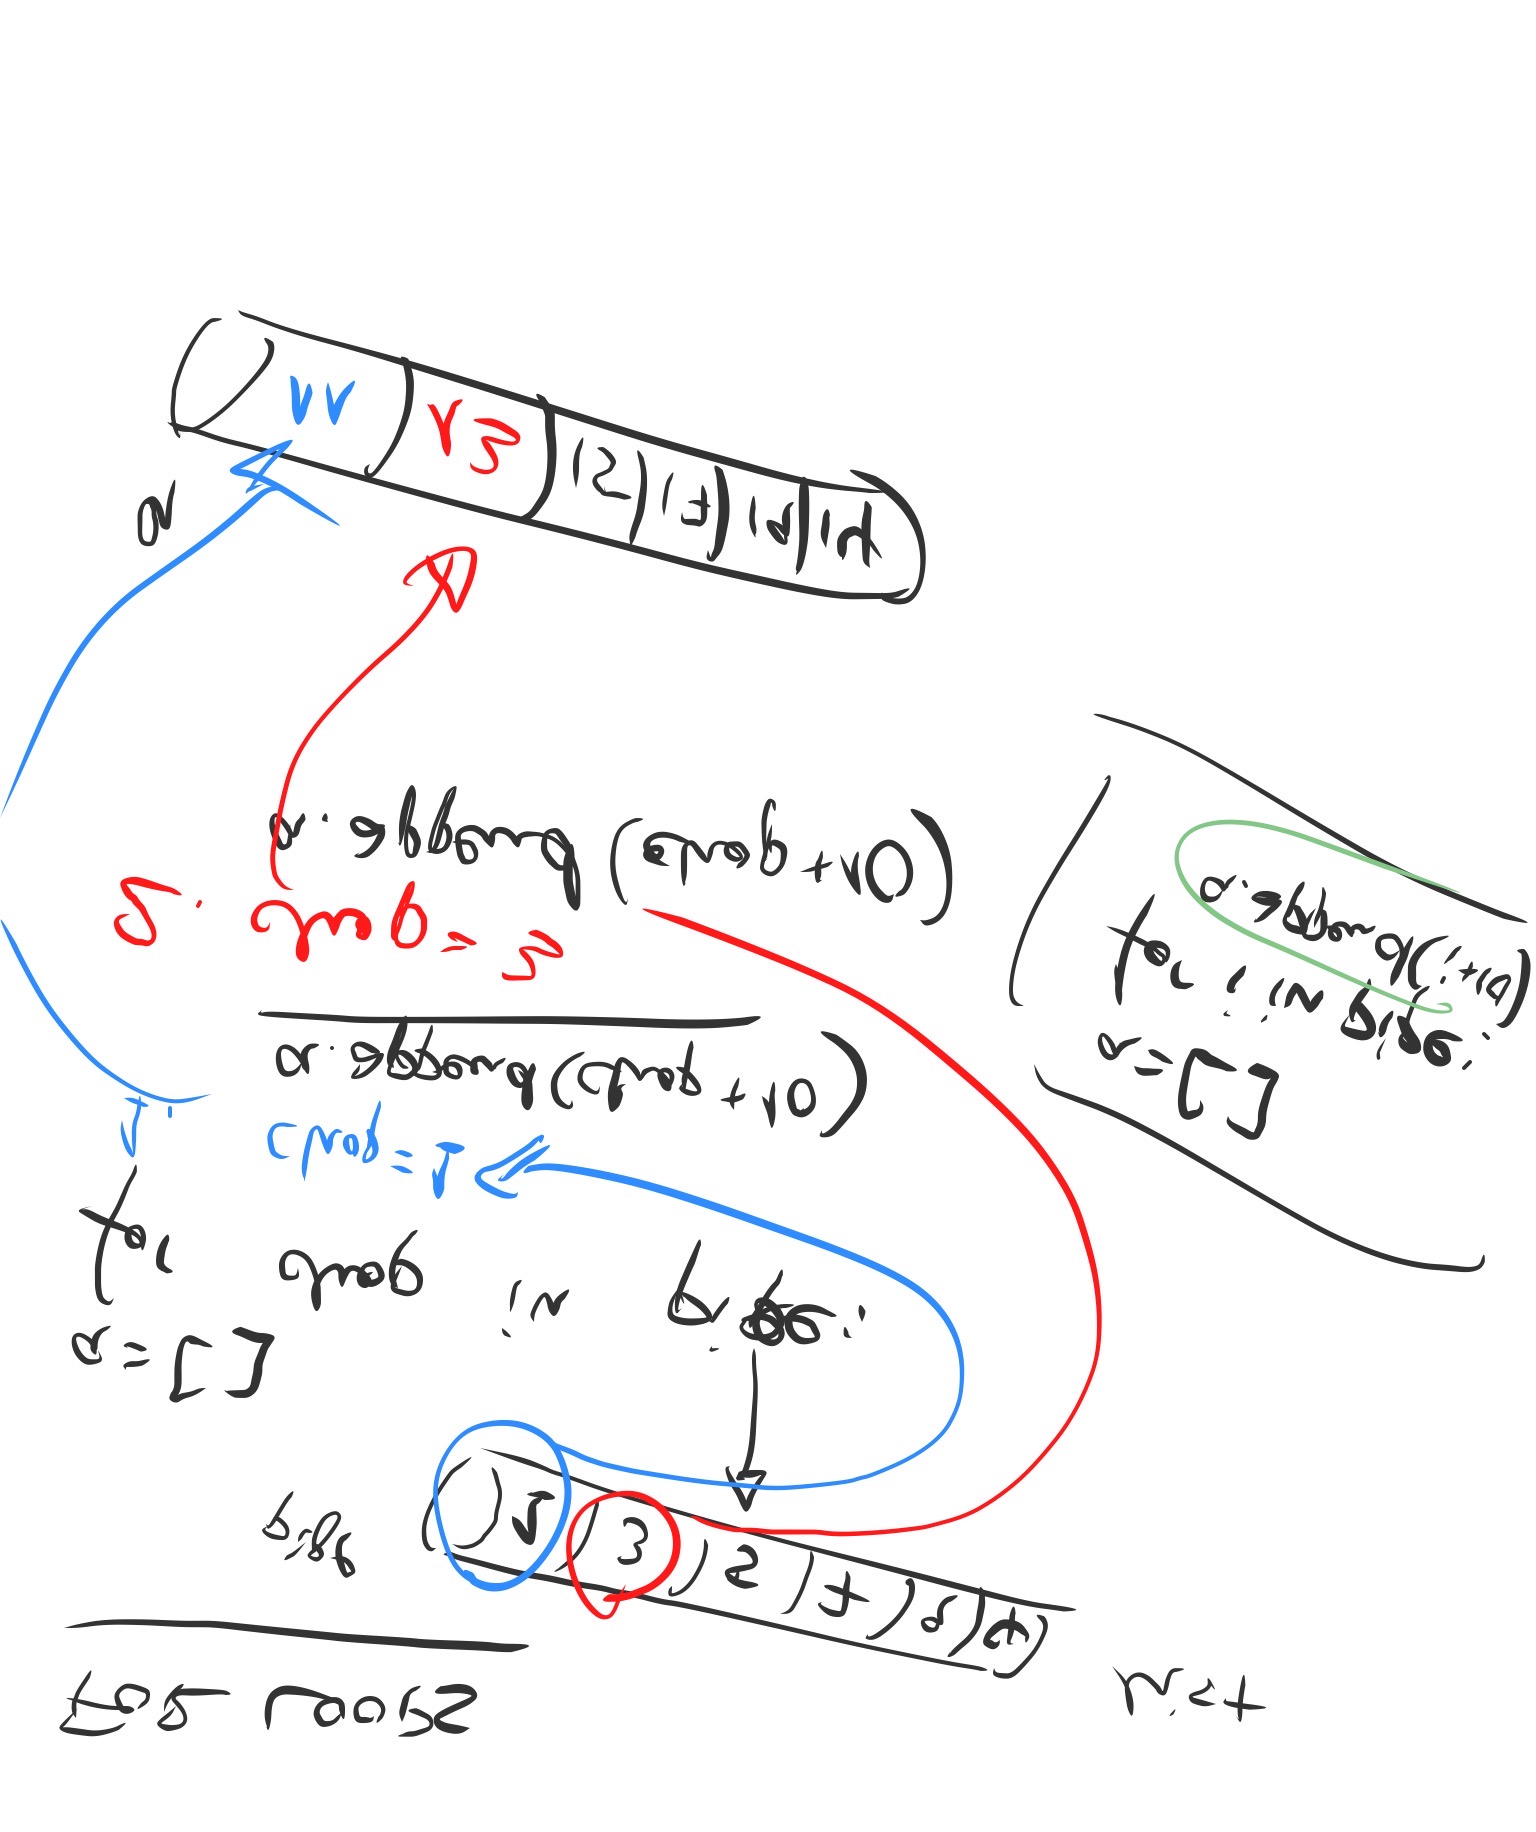 FOR LOOPS
list
pipe
1 3 5 7 9 4
a=[]
for chop in pipe:
1. chop=1
a.append(chop+10)
2. chop=3
a.append(chop+10)
a=[]
for i in pipe:
a.append(i+10)
a
11 13 15 17 19 14